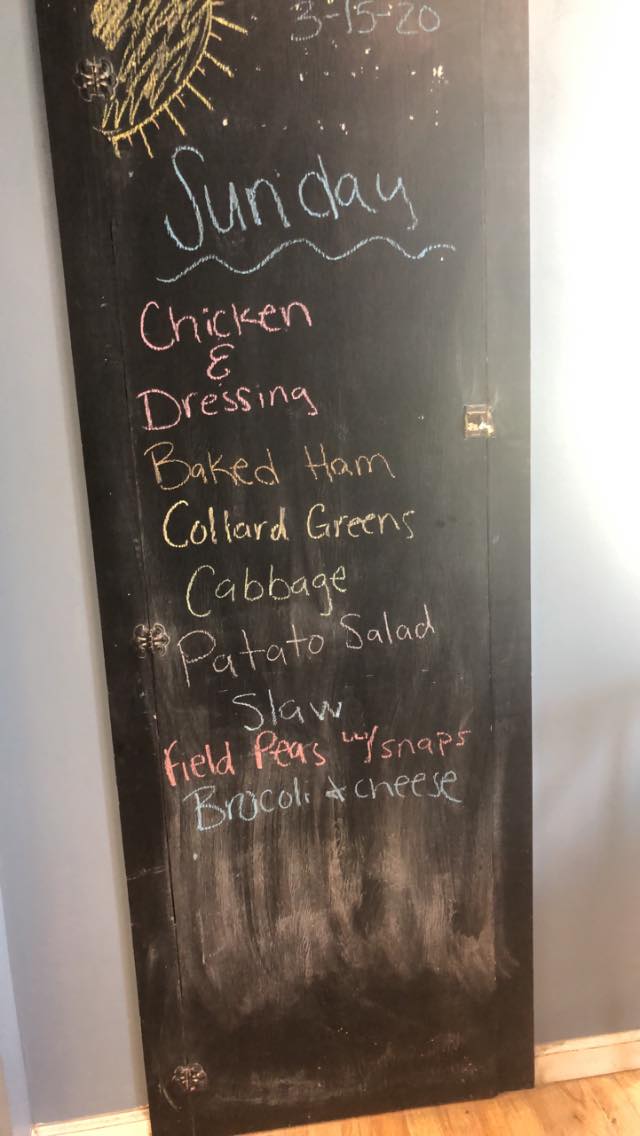 3-15-20
Sunday
Chicken
&
Dressing
Baked Ham
Collard Greens
Cabbage
Patato Salad
Slaw
Field Peas w/ snaps
Brocoli & cheese